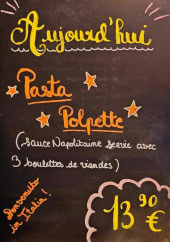 Aujourd'hui
Pasta
Polpette
(Sauce Napolitaine Servie avec
3 boulettes de viandes)
Benvenuto
in Italia!
13,90
€